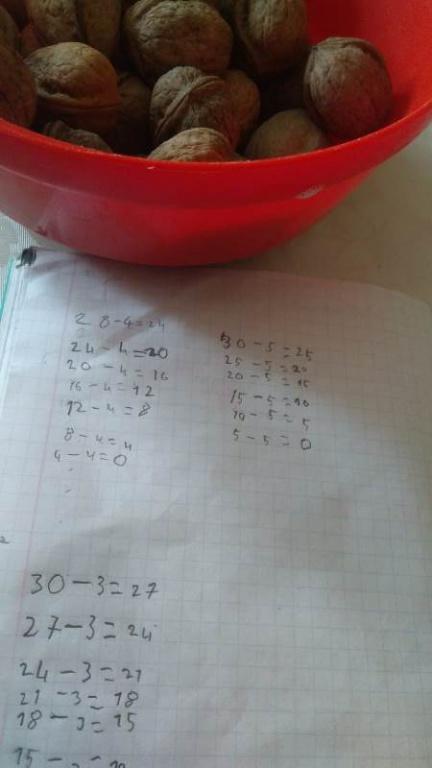 28-4=24
24-4=20
20-4=16
16-4=12
12-4=8
8-4=4
4-4=0
30-5=25
25-5=20
20-5=15
15-5=10
10-5=5
5-5=0
30-3=27
27-3=24
24-3=21
21-3=18
18-3=15
15-